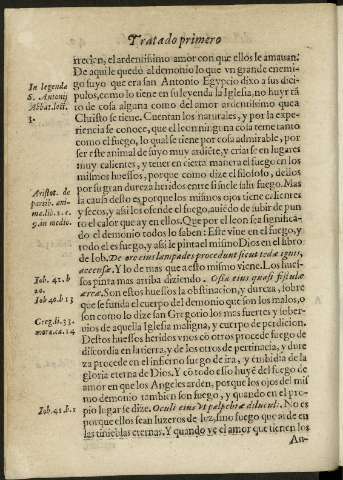 Tratado primero
irecien, el ardentissimo amor con que ellos le amauan.
De aqui le quedò al demonio lo que vn grande enemi-
go suyo que era san Antonio Egypcio dixo a sus dici-
pulos, como lo tiene en su leyenda la Iglesia, no huyr tā
to de cosa alguna como del amor ardentissimo que a
Christo se tiene. Cuentan los naturales, y por la expe-
riencia se conoce, que el leon ninguna cosa teme tanto
como el fuego, lo qual se tiene por cosa admirable, por
ser este animal de suyo muy ardiēte, y criarse en lugares
muy calientes, y tener en cierta manera el fuego en los
mismos huessos, porque como dize el filosofo, dellos
por su gran dureza heridos entre si suele salir fuego. Mas
la causa desto es, porque los mismos ojos tiene calientes
y secos, y assi los ofende el fuego, auiēdo de subir de pun
to el calor que ay en ellos. Que por el leon sea significa-
do el demonio todos lo saben: Este viue en el fuego, y
todo el es fuego, y assi le pinta el mismo Dios en el libro
de Iob. De ore eius lampades procedunt sicut tedæ ignis,
accensæ. Y lo de mas que a esto mismo viene. Los hues-
sos pinta mas arriba diziendo. Ossa eius quasi fistulæ
æreæ. Son estos huessos la obstinacion, y dureza, sobre
que se funda el cuerpo del demonio que son los malos, o
son como lo dize san Gregorio los mas fuertes y sober-
uios de aquella Iglesia maligna, y cuerpo de perdicion.
Destos huessos heridos vnos cō otros procede fuego de
discordia en la tierra, y de los otros de pertinacia, y dure
za procede en el infierno fuego de ira, y embidia de la
gloria eterna de Dios. Y cō todo esso huyē del fuego de
amor en que los Angeles arden, porque los ojos del mis
mo demonio tambien son fuego, y quando en el pro-
pio lugar se dize. Oculi eius vt palpebræ diluculi. No es
porque ellos sean luzeros de luz, sino fuego que arde en
las tinieblas eternas. Y quando ve el amor que tienen los
An-
In legenda
S. Antonij
Abbat. lect.
3.
Aristot. de
partib. ani-
ma. lib. 2. c.
9. in medio.
Iob. 41. b
20.
Iob 40. b 13
Greg. li. 33.
mora. ca. 14
Iob. 41. b. 1